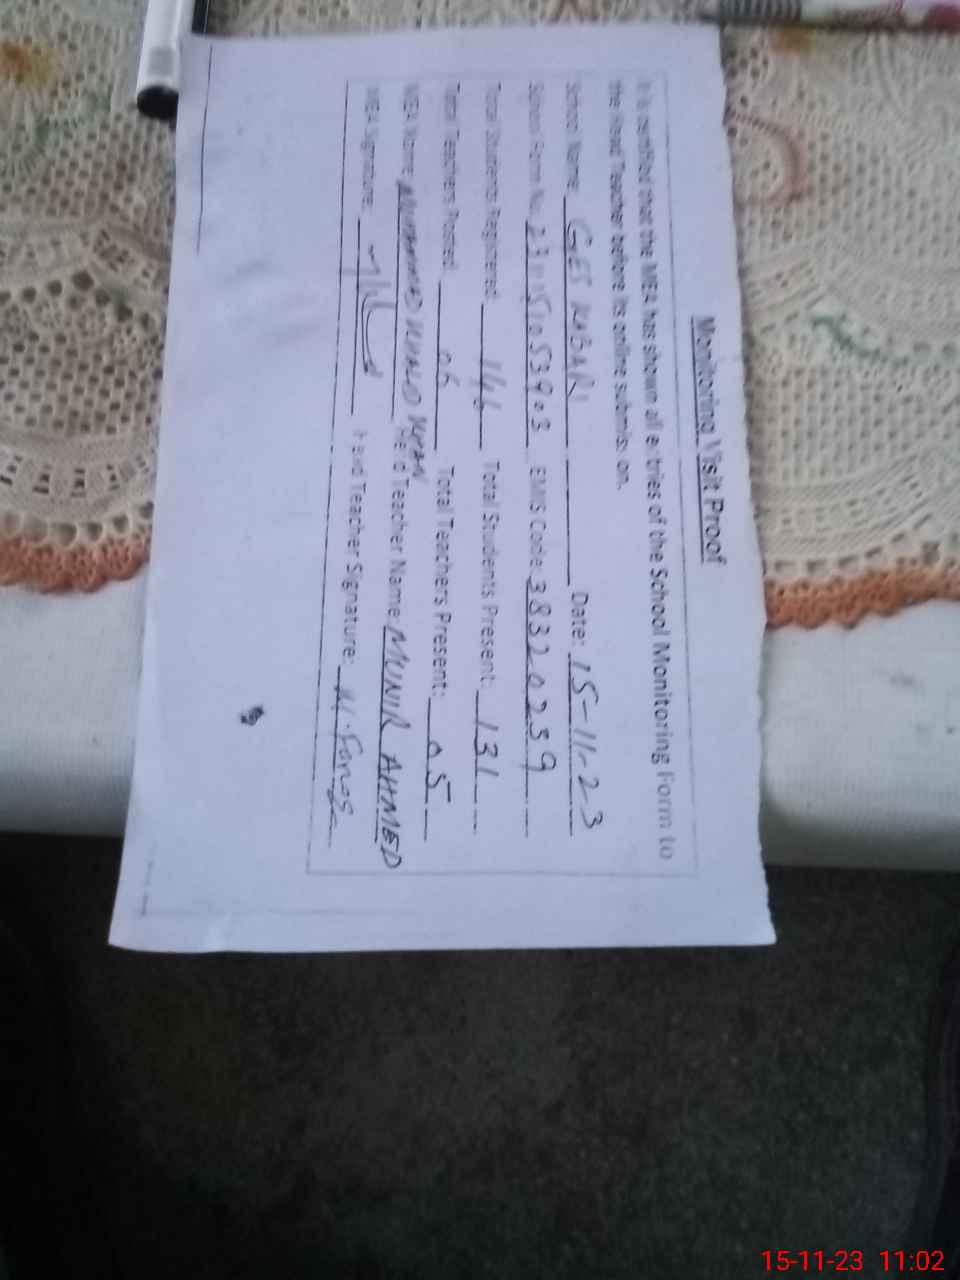 Monitoring Visit Proof
It is certified that the MEA has shown all entries of the School Monitoring Form to
the Head Teacher before its online submission.
School Name: GES KABAR Date: 15-11-23
School Form No: EMIS Code: 38320239
Total Students Registered: 146 Total Students Present: 131
Total Teachers Posted: 06 Total Teachers Present: 05
MEA Name: MUHAMMED KHALID KHAN Head Teacher Name: MUNIR AHMED
MEA Signature: Head Teacher Signature:
15-11-23 11:02